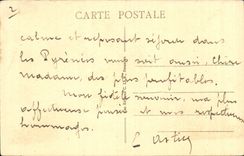 2
CARTE POSTALE
calme et reposant séjour dans
les Pyrénées vous soit aussi, chère
madame, des plus profitables.
Mon fidèle souvenir, ma plus
affectueuse pensée et mes respectueux
hommages.